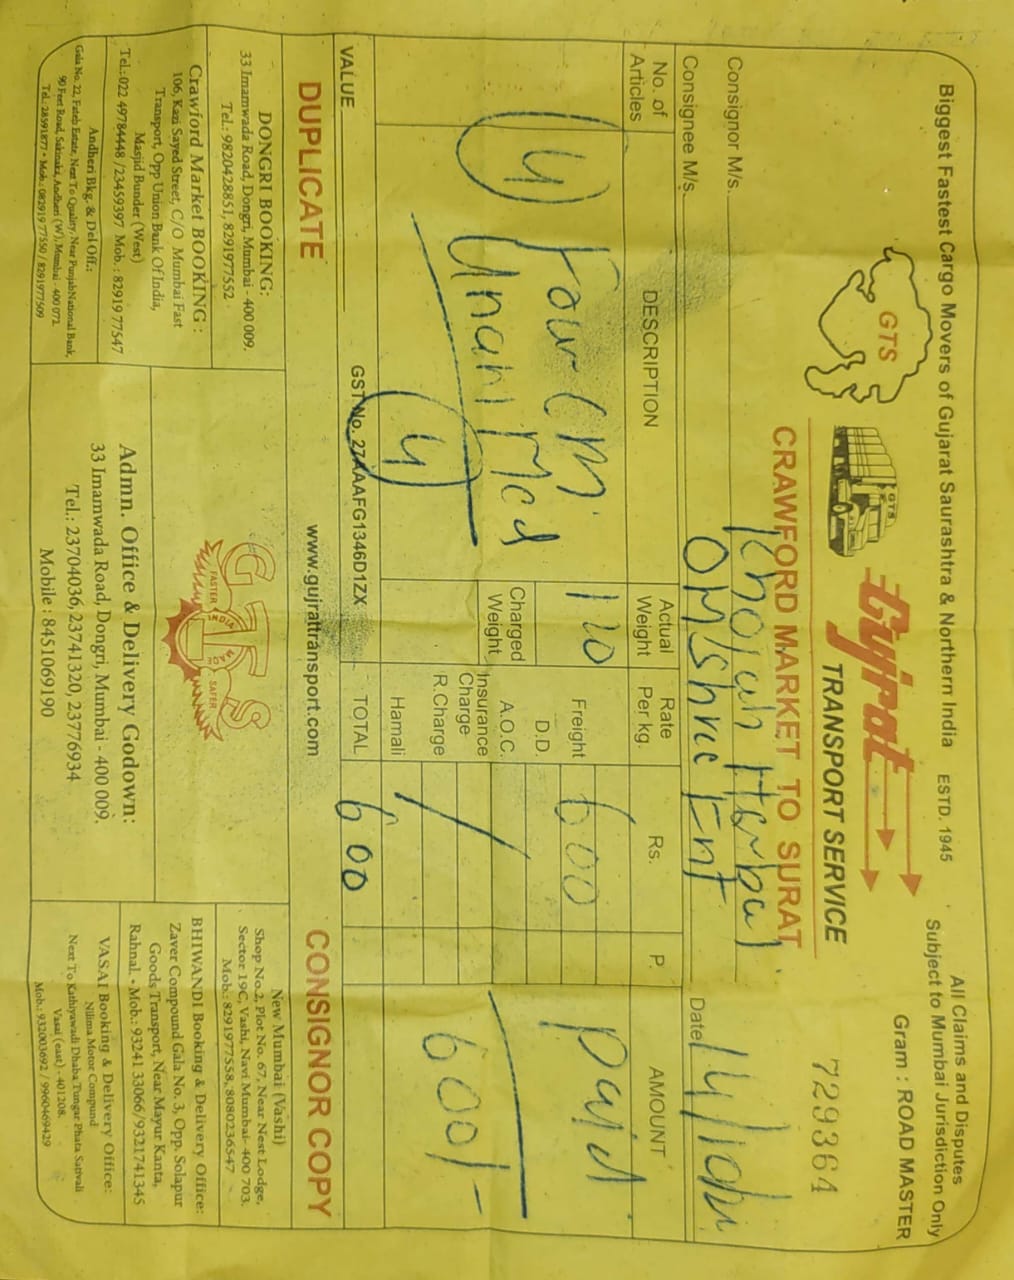 Biggest Fastest Cargo Movers of Gujarat Saurashtra & Northern India ESTD. 1945
All Claims and Disputes
Subject to Mumbai Jurisdiction Only
Gram : ROAD MASTER
GTS
GTS
Gujrat
TRANSPORT SERVICE
729364
CRAWFORD MARKET TO SURAT
Consignor M/s. Khojah Herbal
Date 14/10/
Consignee M/s. OMshree Ent
No. of Articles
DESCRIPTION
Actual Weight
Rate Per kg.
Rs.
P.
AMOUNT
4 Four
Unani Med
4
110
Charged Weight
Freight 600
D.D.
A.O.C.
Insurance Charge
R.Charge
Hamali
Paid
600/-
VALUE
GST No. 27AAAFG1346D1ZX
TOTAL 600
DUPLICATE
www.gujrattransport.com
CONSIGNOR COPY
DONGRI BOOKING:
33 Imamwada Road, Dongri, Mumbai - 400 009.
Tel.: 9820428851, 8291977552
Crawford Market BOOKING :
106, Kazi Sayed Street, C/O Mumbai Fast
Transport, Opp Union Bank Of India,
Masjid Bunder (West)
Tel.:022 49784448 /23459397 Mob. : 82919 77547
Andheri Bkg. & Del Off.:
Gala No. 22, Fateh Estate, Next To Quality, Near Punjab National Bank,
90 Feet Road, Sakinaka, Andheri (W), Mumbai - 400 072.
Tel.: 28591877 • Mob.: 082919 77550 / 8291977509
GTS
FASTER
INDIA
MADE
SAFER
Admn. Office & Delivery Godown:
33 Imamwada Road, Dongri, Mumbai - 400 009.
Tel.: 23704036, 23741320, 23776934
Mobile : 8451069190
New Mumbai (Vashi)
Shop No.2, Plot No. 67, Near Nest Lodge,
Sector 19C, Vashi, Navi Mumbai- 400 703.
Mob.: 8291977558, 8080236547
BHIWANDI Booking & Delivery Office:
Zaver Compound Gala No. 3, Opp. Solapur
Goods Transport, Near Mayur Kanta,
Rahnal. • Mob.: 93241 33066/ 9321741345
VASAI Booking & Delivery Office:
Nilima Motor Compund
Next To Kathiyawadi Dhaba Tungar Phata Sativali
Vasai (east) - 401208.
Mob.: 932003692 / 9960469429